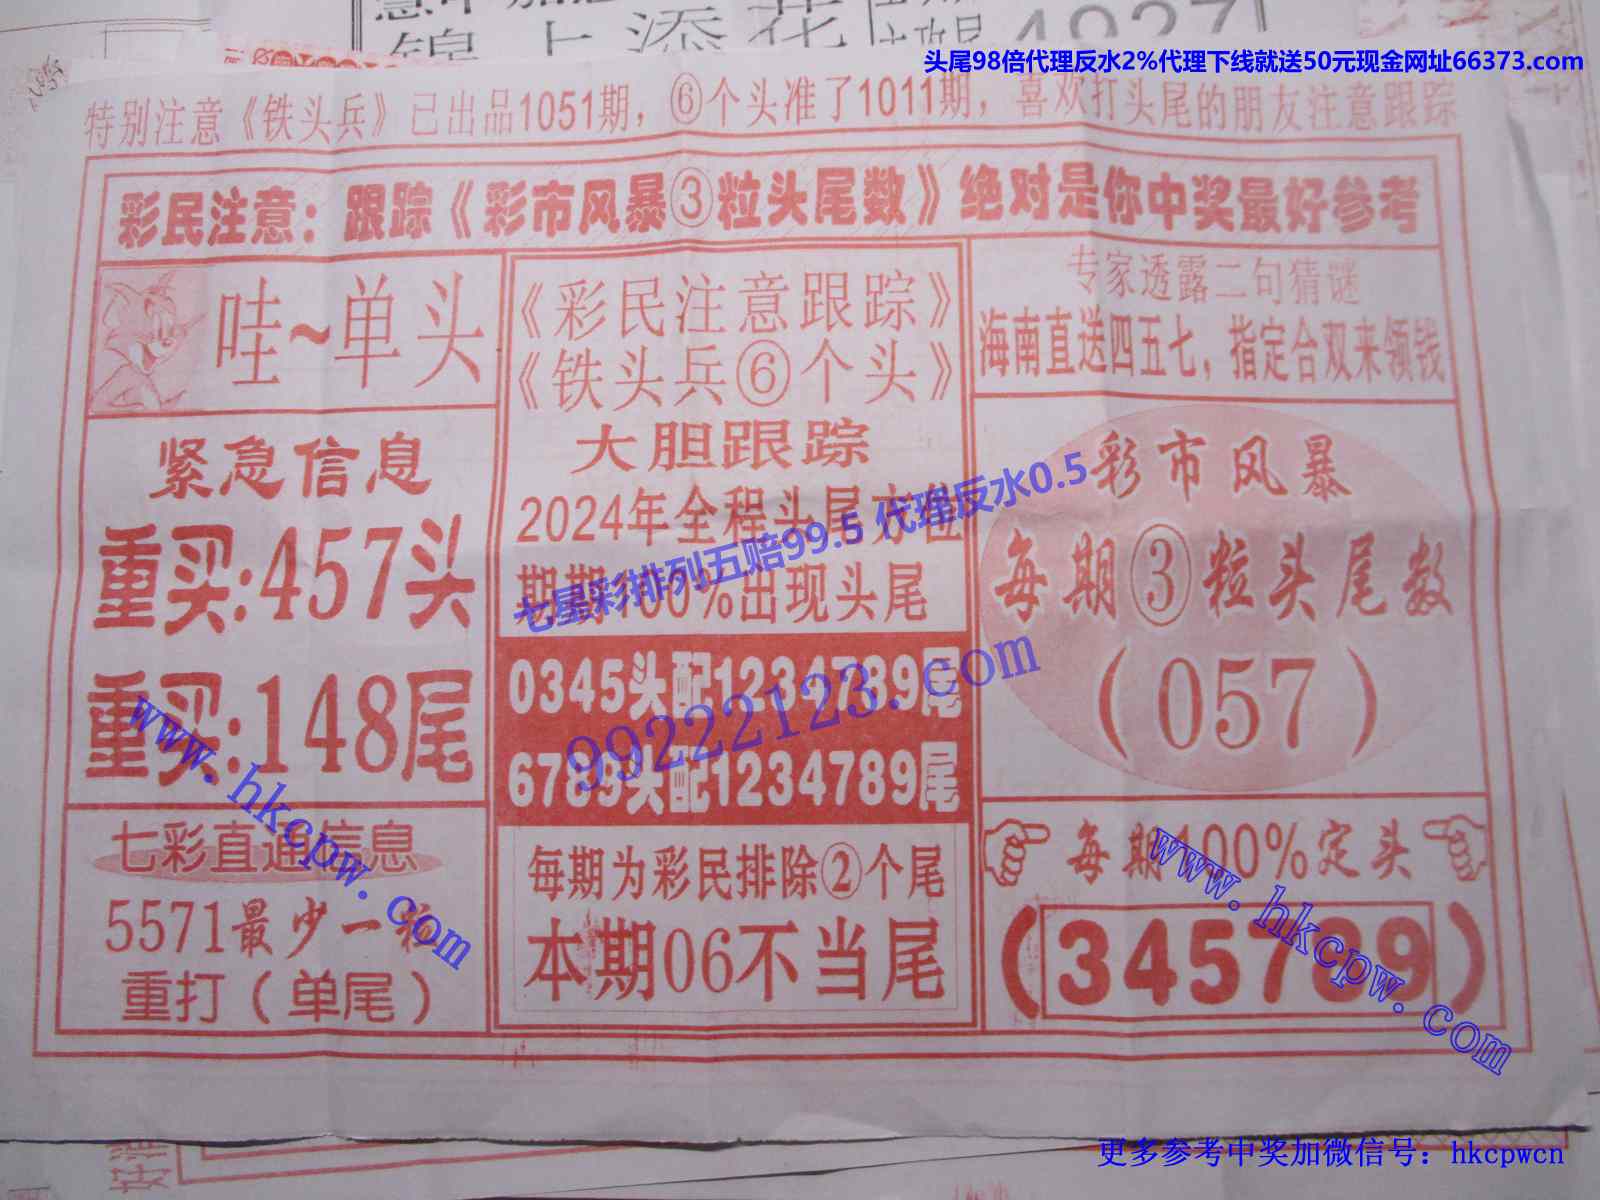 锦上添花
4927
头尾98倍代理反水2%代理下线就送50元现金网址66373.com
特别注意《铁头兵》已出品1051期，⑥个头准了1011期，喜欢打头尾的朋友注意跟踪
彩民注意：跟踪《彩市风暴③粒头尾数》绝对是你中奖最好参考
哇~单头
紧急信息
重买:457头
重买:148尾
七彩直通信息
5571最少一粒
重打（单尾）
《彩民注意跟踪》
《铁头兵⑥个头》
大胆跟踪
2024年全程头尾方位
期期100%出现头尾
0345头配1234789尾
6789头配1234789尾
每期为彩民排除②个尾
本期06不当尾
专家透露二句猜谜
海南直送四五七，指定合双来领钱
彩市风暴
每期③粒头尾数
（057）
每期100%定头
（345789）
七星彩排列五赔99.5 代理反水0.5
99222123.com
www.hkcpw.com
www.hkcpw.com
更多参考中奖加微信号：hkcpwcn